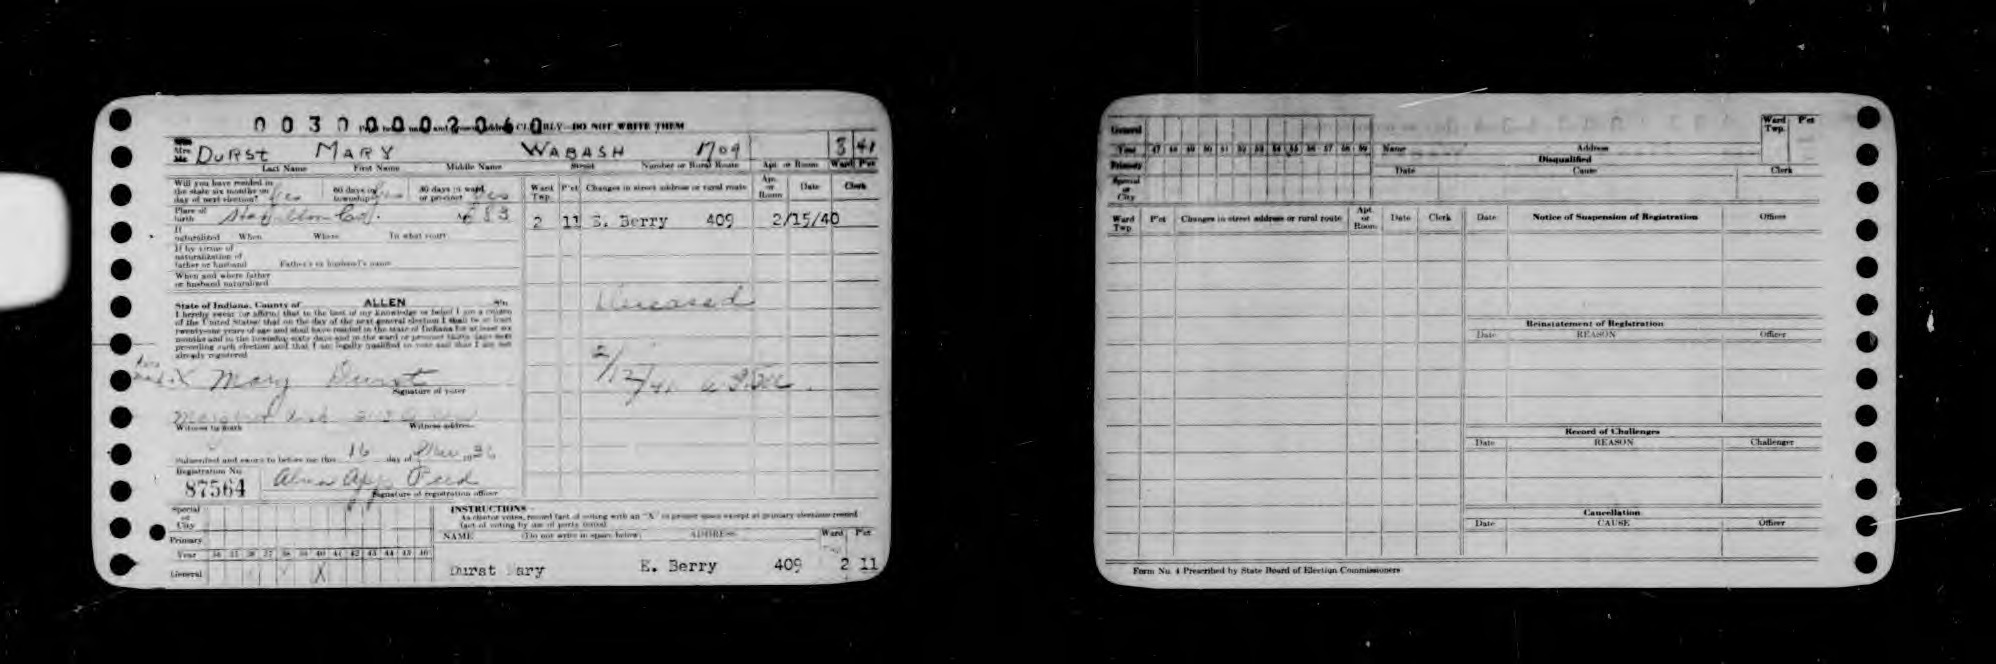 0030000020 60
CLEARLY—DO NOT WRITE THEM
Mrs. DURST MARY WABASH 1709 3 41
Last Name First Name Middle Name Street Number or Rural Route Apt. or Room Ward P'ct
Will you have resided in the state six months on day of next election? Yes 60 days in township? Yes 30 days in ward or precinct? Yes
Place of birth Co. 1883
If naturalized When Where In what court
If by virtue of naturalization of father or husband Father's or husband's name
When and where father or husband naturalized
State of Indiana, County of ALLEN ss:
I hereby swear (or affirm) that to the best of my knowledge or belief I am a citizen
of the United States; that on the day of the next general election I shall be at least
twenty-one years of age and shall have resided in the state of Indiana for at least six
months and in the township sixty days and in the ward or precinct thirty days next
preceding such election and that I am legally qualified to vote and that I am not
already registered
X Mary Durst
Signature of voter
Witness to mark Witness address
Subscribed and sworn to before me this 16 day of 1936
Registration No.
87564
Signature of registration officer
Ward Twp. P'ct Changes in street address or rural route Apt. or Room Date Clerk
2 11 E. Berry 409 2/15/40
Deceased
2/12/41
Special or City
Primary
Year 34 35 36 37 38 39 40 41 42 43 44 45 46
General X
INSTRUCTIONS—
As elector votes, record fact of voting with an "X" in proper space except at primary elections record
fact of voting by use of party initial.
NAME (Do not write in space below) ADDRESS Ward Twp. P'ct
Durst Mary E. Berry 409 2 11
General
Year 47 48 49 50 51 52 53 54 55 56 57 58 59
Primary
Special or City
Name Address
Ward Twp. P'ct
Disqualified
Date Cause Clerk
Ward Twp. P'ct Changes in street address or rural route Apt. or Room Date Clerk
Date Notice of Suspension of Registration Officer
Reinstatement of Registration
Date REASON Officer
Record of Challenges
Date REASON Challenger
Cancellation
Date CAUSE Officer
Form No. 4 Prescribed by State Board of Election Commissioners